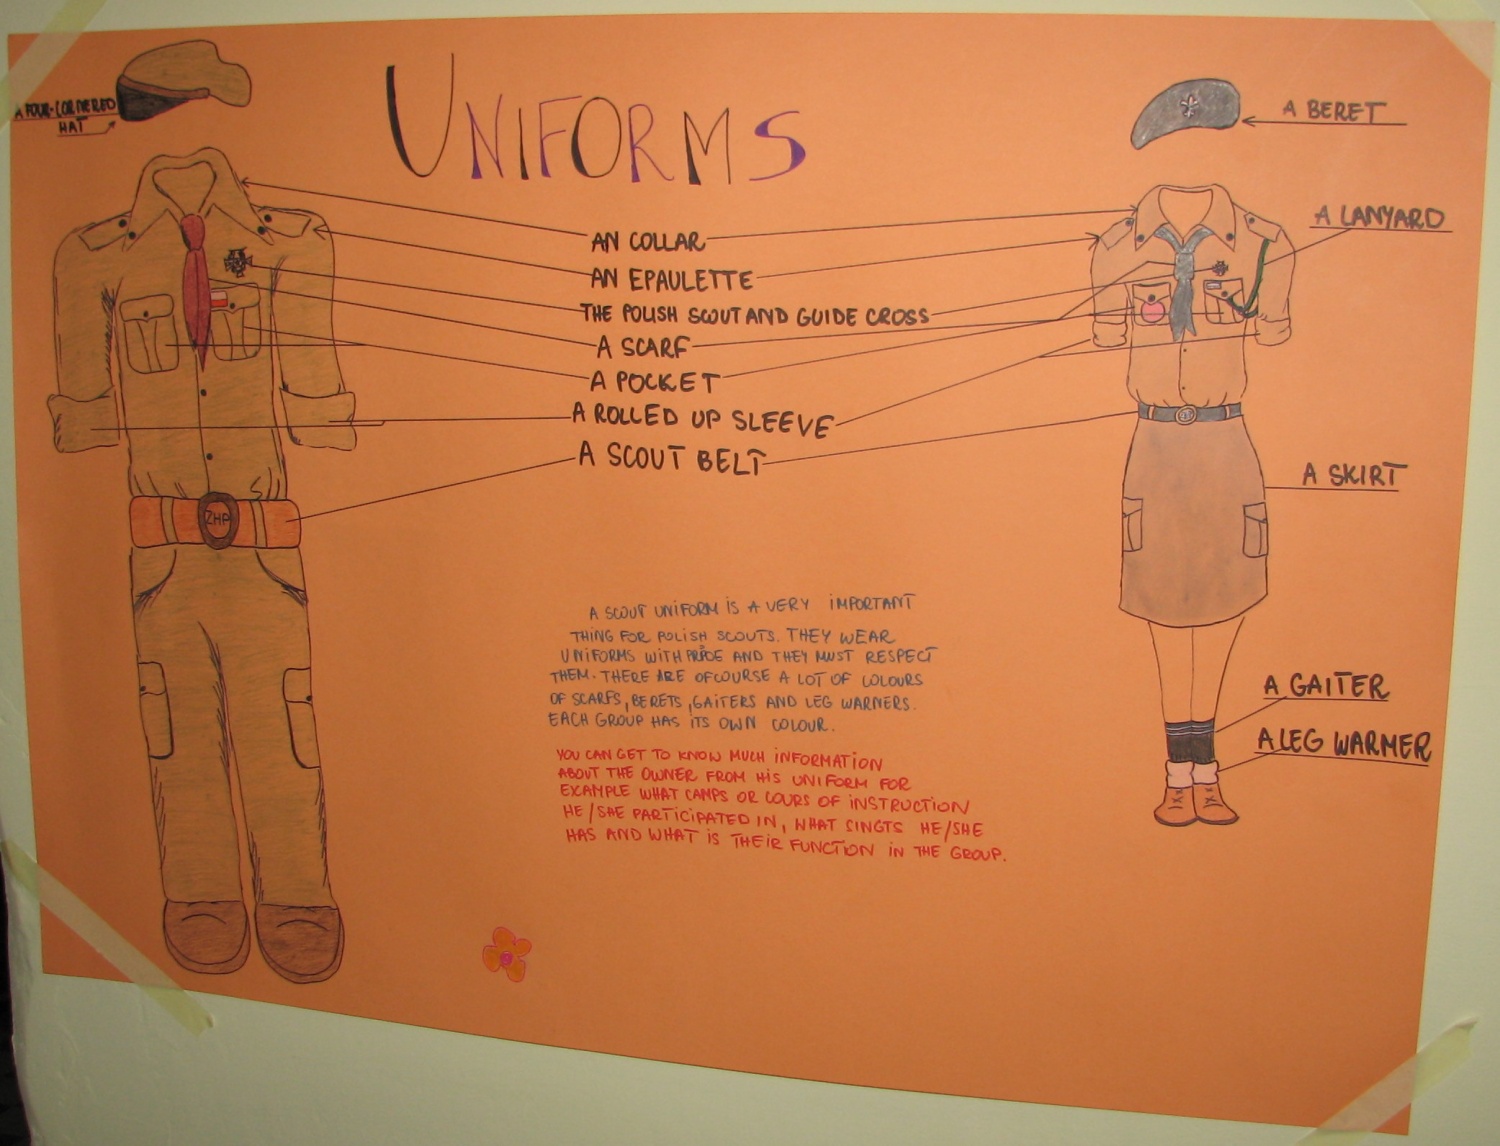 UNIFORMS
A FOUR-CORNERED
HAT
A BERET
A LANYARD
AN COLLAR
AN EPAULETTE
THE POLISH SCOUT AND GUIDE CROSS
A SCARF
A POCKET
A ROLLED UP SLEEVE
A SCOUT BELT
ZHP
A SKIRT
A GAITER
A LEG WARMER
A SCOUT UNIFORM IS A VERY IMPORTANT
THING FOR POLISH SCOUTS. THEY WEAR
UNIFORMS WITH PRIDE AND THEY MUST RESPECT
THEM. THERE ARE OFCOURSE A LOT OF COLOURS
OF SCARFS, BERETS, GAITERS AND LEG WARNERS.
EACH GROUP HAS ITS OWN COLOUR.
YOU CAN GET TO KNOW MUCH INFORMATION
ABOUT THE OWNER FROM HIS UNIFORM FOR
EXAMPLE WHAT CAMPS OR COURS OF INSTRUCTION
HE/SHE PARTICIPATED IN, WHAT SINGTS HE/SHE
HAS AND WHAT IS THEIR FUNCTION IN THE GROUP.